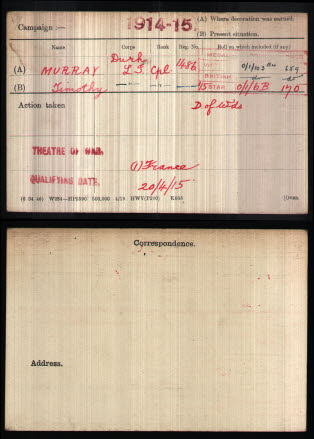 Campaign :— 1914-15. (A) Where decoration was earned.
(B) Present situation.
Name Corps Rank Reg. No. Roll on which included (if any)
(A) MURRAY Durh L.I. Cpl 1486 MEDAL BRITISH 659
(B) Timothy —"— —"— 15 STAR 0/1/6B 170
Action taken D of Wds
THEATRE OF WAR. (1) France
QUALIFYING DATE. 20/4/15
(6 34 46) W234—HP5590 500,000 4/19 HWV(P240) K608 [OVER.
Correspondence.
Address.